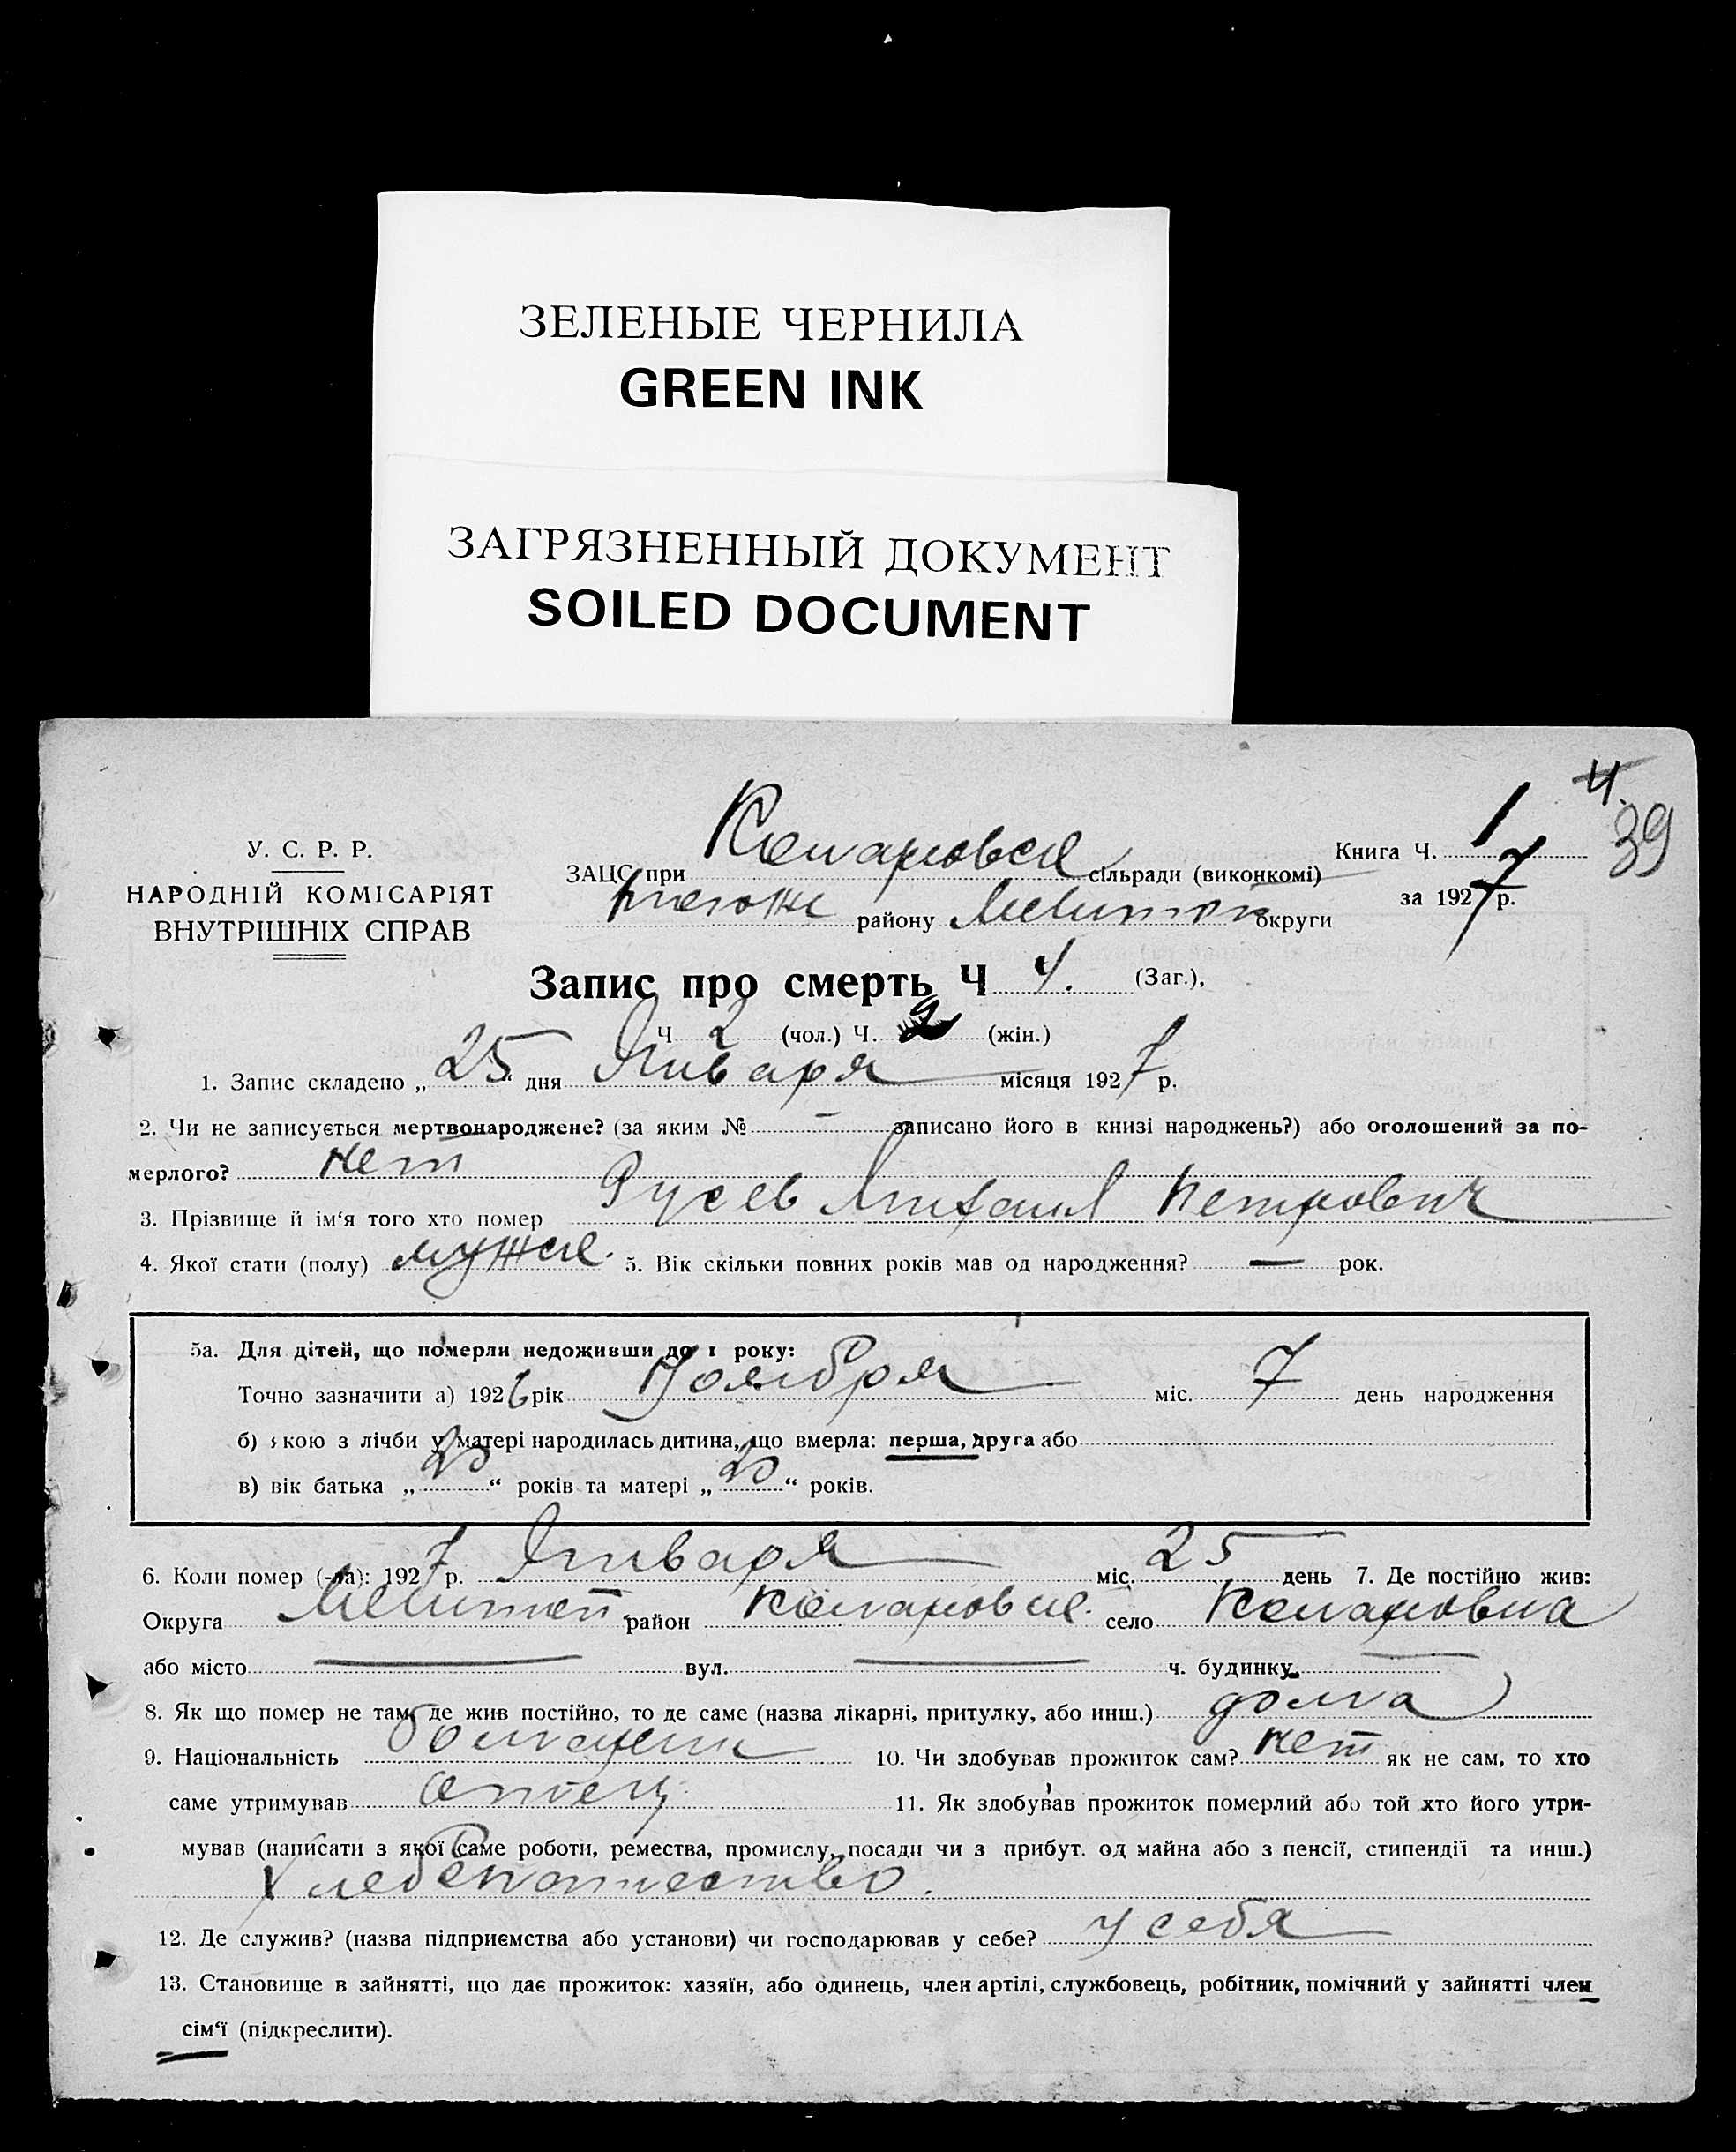 ЗЕЛЕНЫЕ ЧЕРНИЛА
GREEN INK
ЗАГРЯЗНЕННЫЙ ДОКУМЕНТ
SOILED DOCUMENT
4.
39
У. С. Р. Р.
НАРОДНІЙ КОМІСАРІЯТ
ВНУТРІШНІХ СПРАВ
ЗАЦС при сільради (виконкомі)
району Мелитоп округи
Книга Ч. 1
за 1927 р.
Запис про смерть Ч 4. (Заг.),
Ч 2 (чол.) Ч. 2 (жін.)
1. Запис складено „ 25 “ дня Января місяця 1927 р.
2. Чи не записується мертвонароджене? (за яким № — записано його в книзі народжень?) або оголошений за по-
мерлого? нет
3. Прізвище й ім‘я того хто помер Русев Михаил Петрович
4. Якої стати (полу) мужск. 5. Вік скільки повних років мав од народження? — рок.
5а. Для дітей, що померли недоживши до 1 року:
Точно зазначити а) 1926 рік Ноября міс. 7 день народження
б) якою з лічби у матері народилась дитина, що вмерла: перша, друга або
в) вік батька „ 20 “ років та матері „ 20 “ років.
6. Коли помер (-ла): 1927 р. Января міс. 25 день 7. Де постійно жив:
Округа Мелитоп. район село
або місто — вул. — ч. будинку —
8. Як що помер не там, де жив постійно, то де саме (назва лікарні, притулку, або инш.) дома
9. Національність болгарин 10. Чи здобував прожиток сам? нет як не сам, то хто
саме утримував отец 11. Як здобував прожиток померлий або той хто його утри-
мував (написати з якої саме роботи, ремества, промислу, посади чи з прибут. од майна або з пенсії, стипендії та инш.)
Хлебопашество.
12. Де служив? (назва підприємства або установи) чи господарював у себе? у себя
13. Становище в зайнятті, що дає прожиток: хазяїн, або одинець, член артілі, службовець, робітник, помічний у зайнятті член
сім‘ї (підкреслити).